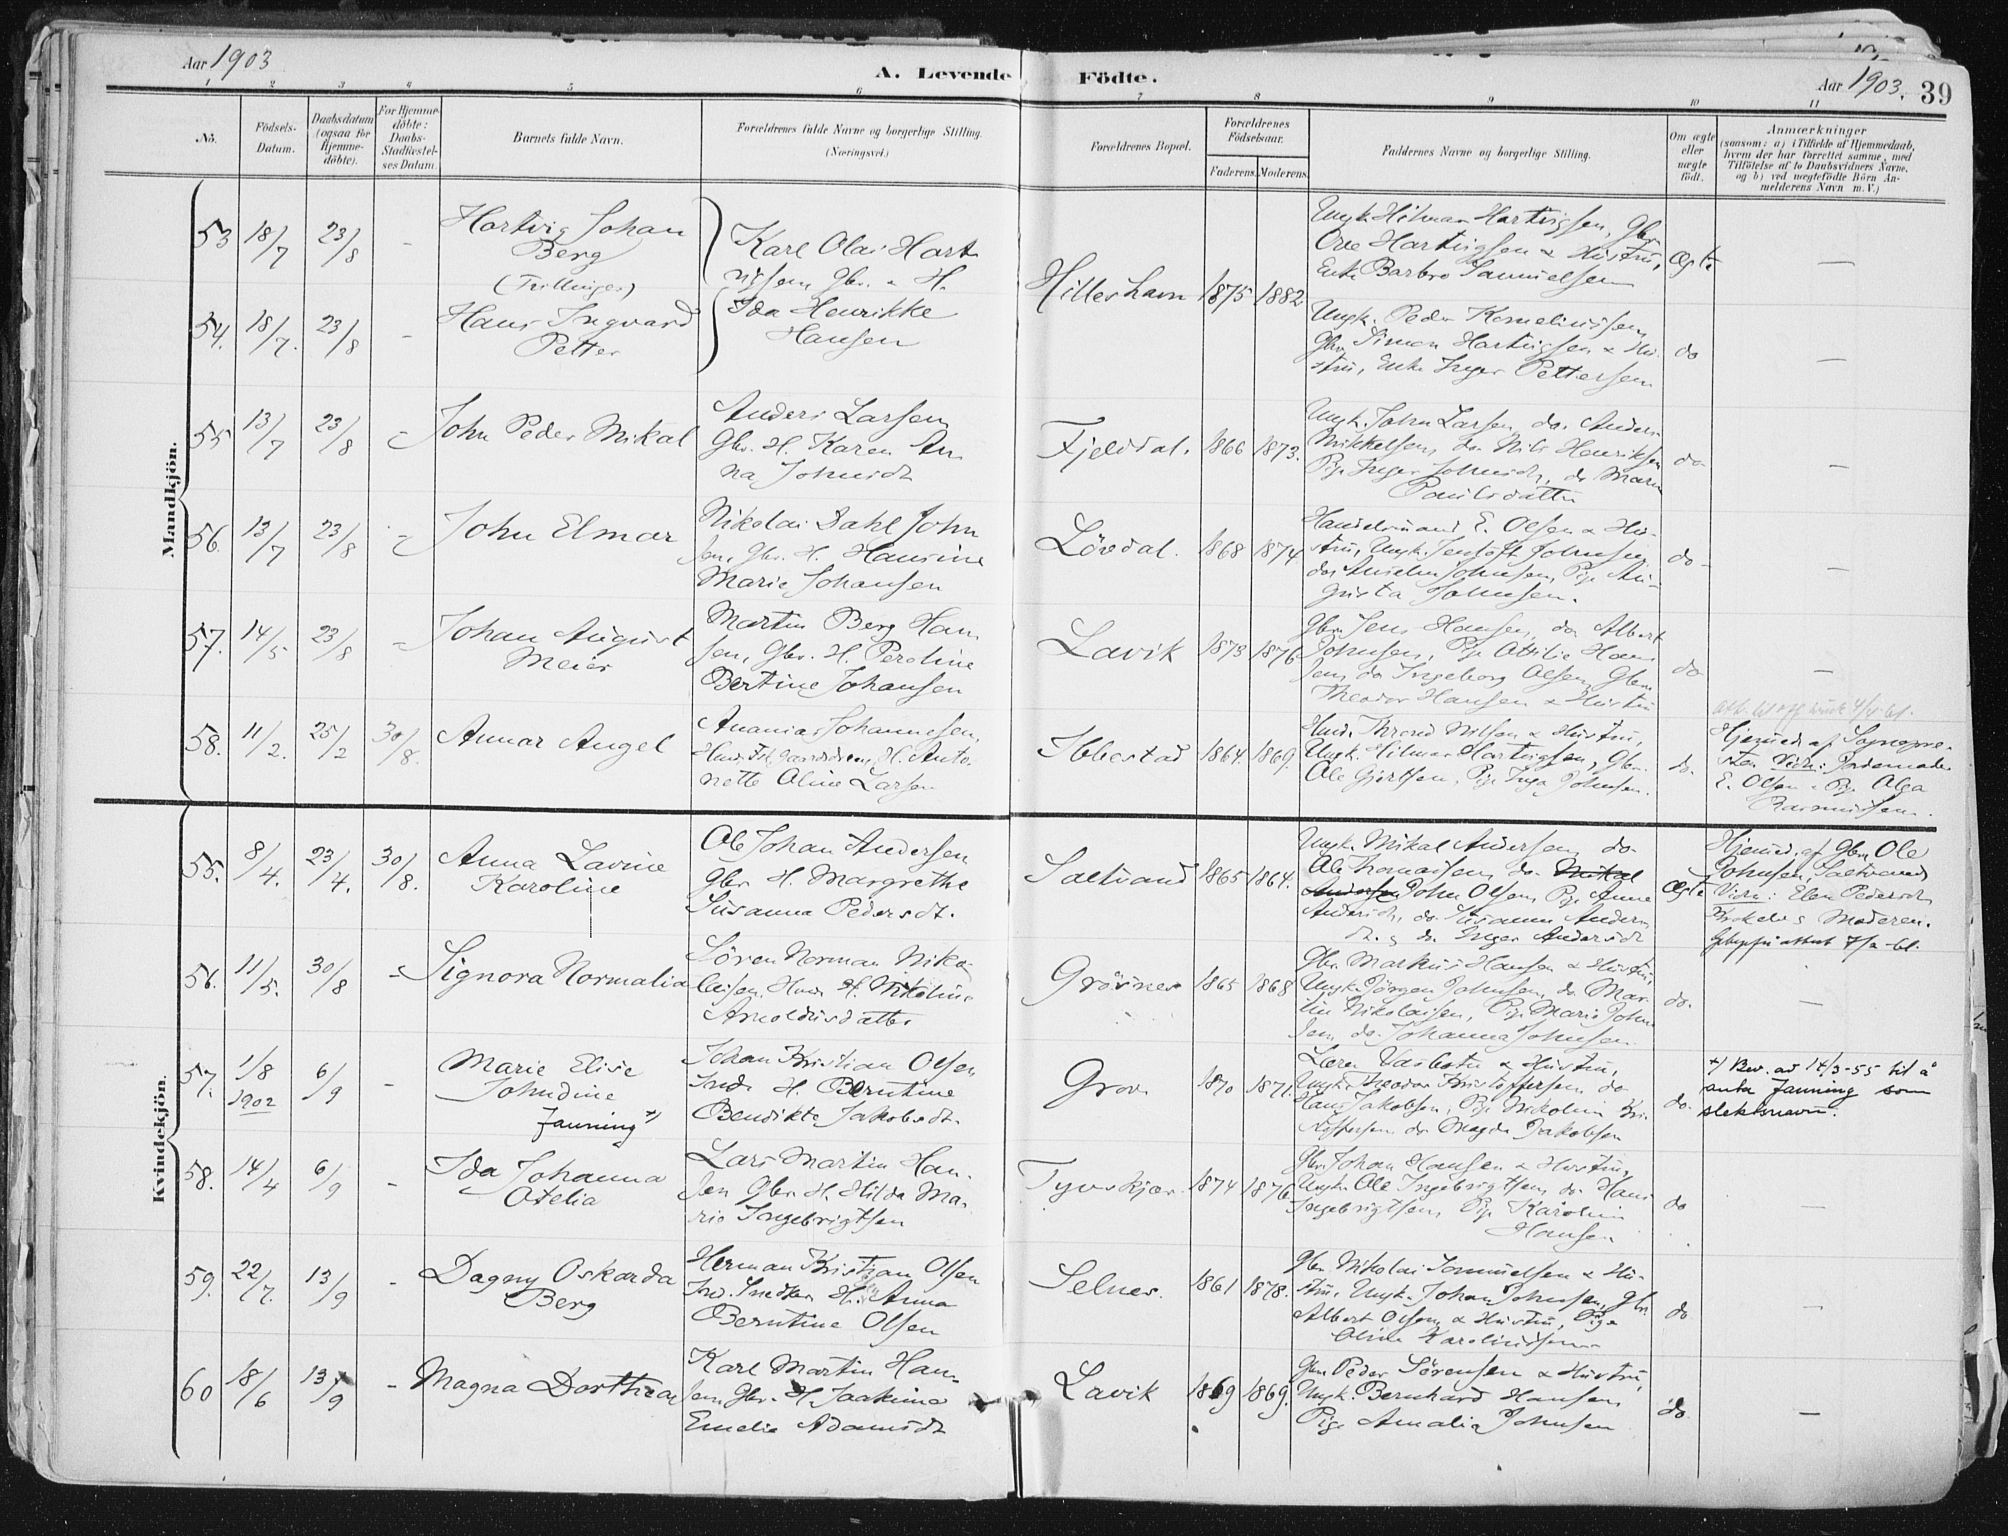 Aar 1903
A. Levende Födte.
Aar 1903. 39
1 2 3 4 5 6 7 8 9 10 11
No. Födsels-Datum. Daabsdatum (ogsaa for Hjemme-döbte). For Hjemme-döbte: Daabs-Stadfæstel-ses Datum. Barnets fulde Navn. Forældrenes fulde Navne og borgerlige Stilling. (Næringsvei.) Forældrenes Bopæl. Forældrenes Födselsaar. Faderens. Moderens. Faddernes Navne og borgerlige Stilling. Om ægte eller uægte födt. Anmærkninger (saasom: a) i Tilfælde af Hjemmedaab, hvem der har forrettet samme, med Tilföielse af to Daabsvidners Navne, og b) ved uægtefödte Börn An-melderens Navn m. V.)
Mandkjön.
53 18/7 23/8 -
Hartvig Johan
Berg
(Tvillinger)
Karl Olai Hart
vigsen Gbr. & H.
Ida Henrikke
Hansen
Hilleshavn 1875 1882
Ungk. Hilmar Hartvigsen, Gbr.
Ove Hartvigsen & Hustru,
Enke Barbro Samuelsen
Ægte —
54. 18/7. 23/8 -
Hans Ingvard
Petter
Ungk. Peder Kornelius­sen,
Gbr. Simon Hartvigsen & Hu-
stru, Enke Inger Pettersen
do —
55 13/7 23/8 -
John Peder Mikal
Anders Larsen
Gbr. H. Karen An
na Johnsdt
Fjelddal. 1866 1873.
Ungk. John Larsen, do. Anders
Mikkelsen, do Nils Henriksen
Pige Inger Johnsdt, do Maren
Paulsdatter
do —
56. 13/7 23/8 -
John Elmar
Nikolai Dahl John
sen, Gbr. H. Hansine
Marie Johansen
Lövdal. 1868 1874
Handelsmand E. Olsen & Hu-
stru, Ungk. Jentoft Johnsen,
do Anselm Johnsen, Pige Au-
gusta Johnsen.
do —
57. 14/5 23/8 -
Johan August
Meier
Martin Berg Han
sen, Gbr. H. Peroline
Bertine Johansen
Lavik 1873 1876
Gbr. Jens Hansen, do Albert
Johnsen, Pige Attilie Han
sen, do Ingeborg Olsen, Gbr.
Theodor Hansen & Hustru
do —
58. 11/2. 25/2 30/8.
Annar Angel
Ananias Johannesen,
H. Anto-
nette Oline Larsen
Ibbestad 1864. 1869.
Nilsen & Hustru,
Ungk. Hilmar Hartvigsen, Gbr.
Ole Gjertsen, Pige Inga Johnsen.
do.
Hjemmed. af Sognepre-
sten Vidn: Jordemoder
E. Olsen & Pige Olga
Rasmussen.
Kvindekjön.
55. 8/4. 23/4. 30/8.
Anna Lavine
Karoline
Ole Johan Andersen
Gbr. H. Margrethe
Susanna Pedersdt.
Saltvand 1865 1864.
Ungk. Mikal Andersen, do
Ole Thomassen, do Mikal
Andersen John Olsen, Pige Anne
Andersdt, do Susanna Anders
dt. & do Inger Andersdt
Ægte
Hjemmed. af Gbr. Ole
Johnsen, Saltvand
Vidn: Elen Pedersdt,
& Moderen.
56. 11/5. 30/8 -
Signora Normalia
Sören Norman Niko
laisen, H. Nikoline
Arnoldusdatter
Grösnes 1865 1868
Gbr. Markus Hansen & Hustru,
Ungk. Jörgen Johnsen, do Mar
tin Nikolaisen, Pige Marie John
sen, do. Johanna Johnsen.
do. —
57. 1/8 1902 6/9 -
Marie Elise
Johndine
Fanning x)
Johan Kristian Olsen
Inds. H. Berntine
Bendikte Jakobsdt.
Grov. 1870 1871.
& Hustru,
Ungk. Theodor Kristoffersen, do
Hans Jakobsen, Pige Nikoline Kri
stoffersen do Magda Jakobsen
do.
x) Bev. av 14/3-55 til å
anta Fanning som
slektsnavn.
58. 14/4 6/9 -
Ida Johanna
Otelia
Lars Martin Han-
sen Gbr. H. Hilda Ma-
rie Ingebrigtsen
Tyvskjær. 1874 1876
Gbr. Johan Hansen & Hustru,
Ungk. Ole Ingebrigtsen, do Hans
Ingebrigtsen, Pige Karoline
Hansen
do —
59. 22/7. 13/9 -
Dagny Oskarda
Berg
Herman Kristian Olsen
Ind. Snedker H. Anna
Berntine Olsen
Selnes. 1861 1878.
Gbr. Nikolai Samuelsen & Hu-
stru, Ungk. Johan Johnsen, Gbr.
Albert Olsen & Hustru, Pige
Oline Karoliussen
do —
60 18/6 13/9 -
Magna Dorthea
Karl Martin Han-
sen, Gbr. H. Joakima
Emelie Adamsdt
Lavik 1869 1869.
Gbr. Peder Sörensen & Hustru,
Ungk. Bernhard Hansen
Pige Amalia Johnsen
do —